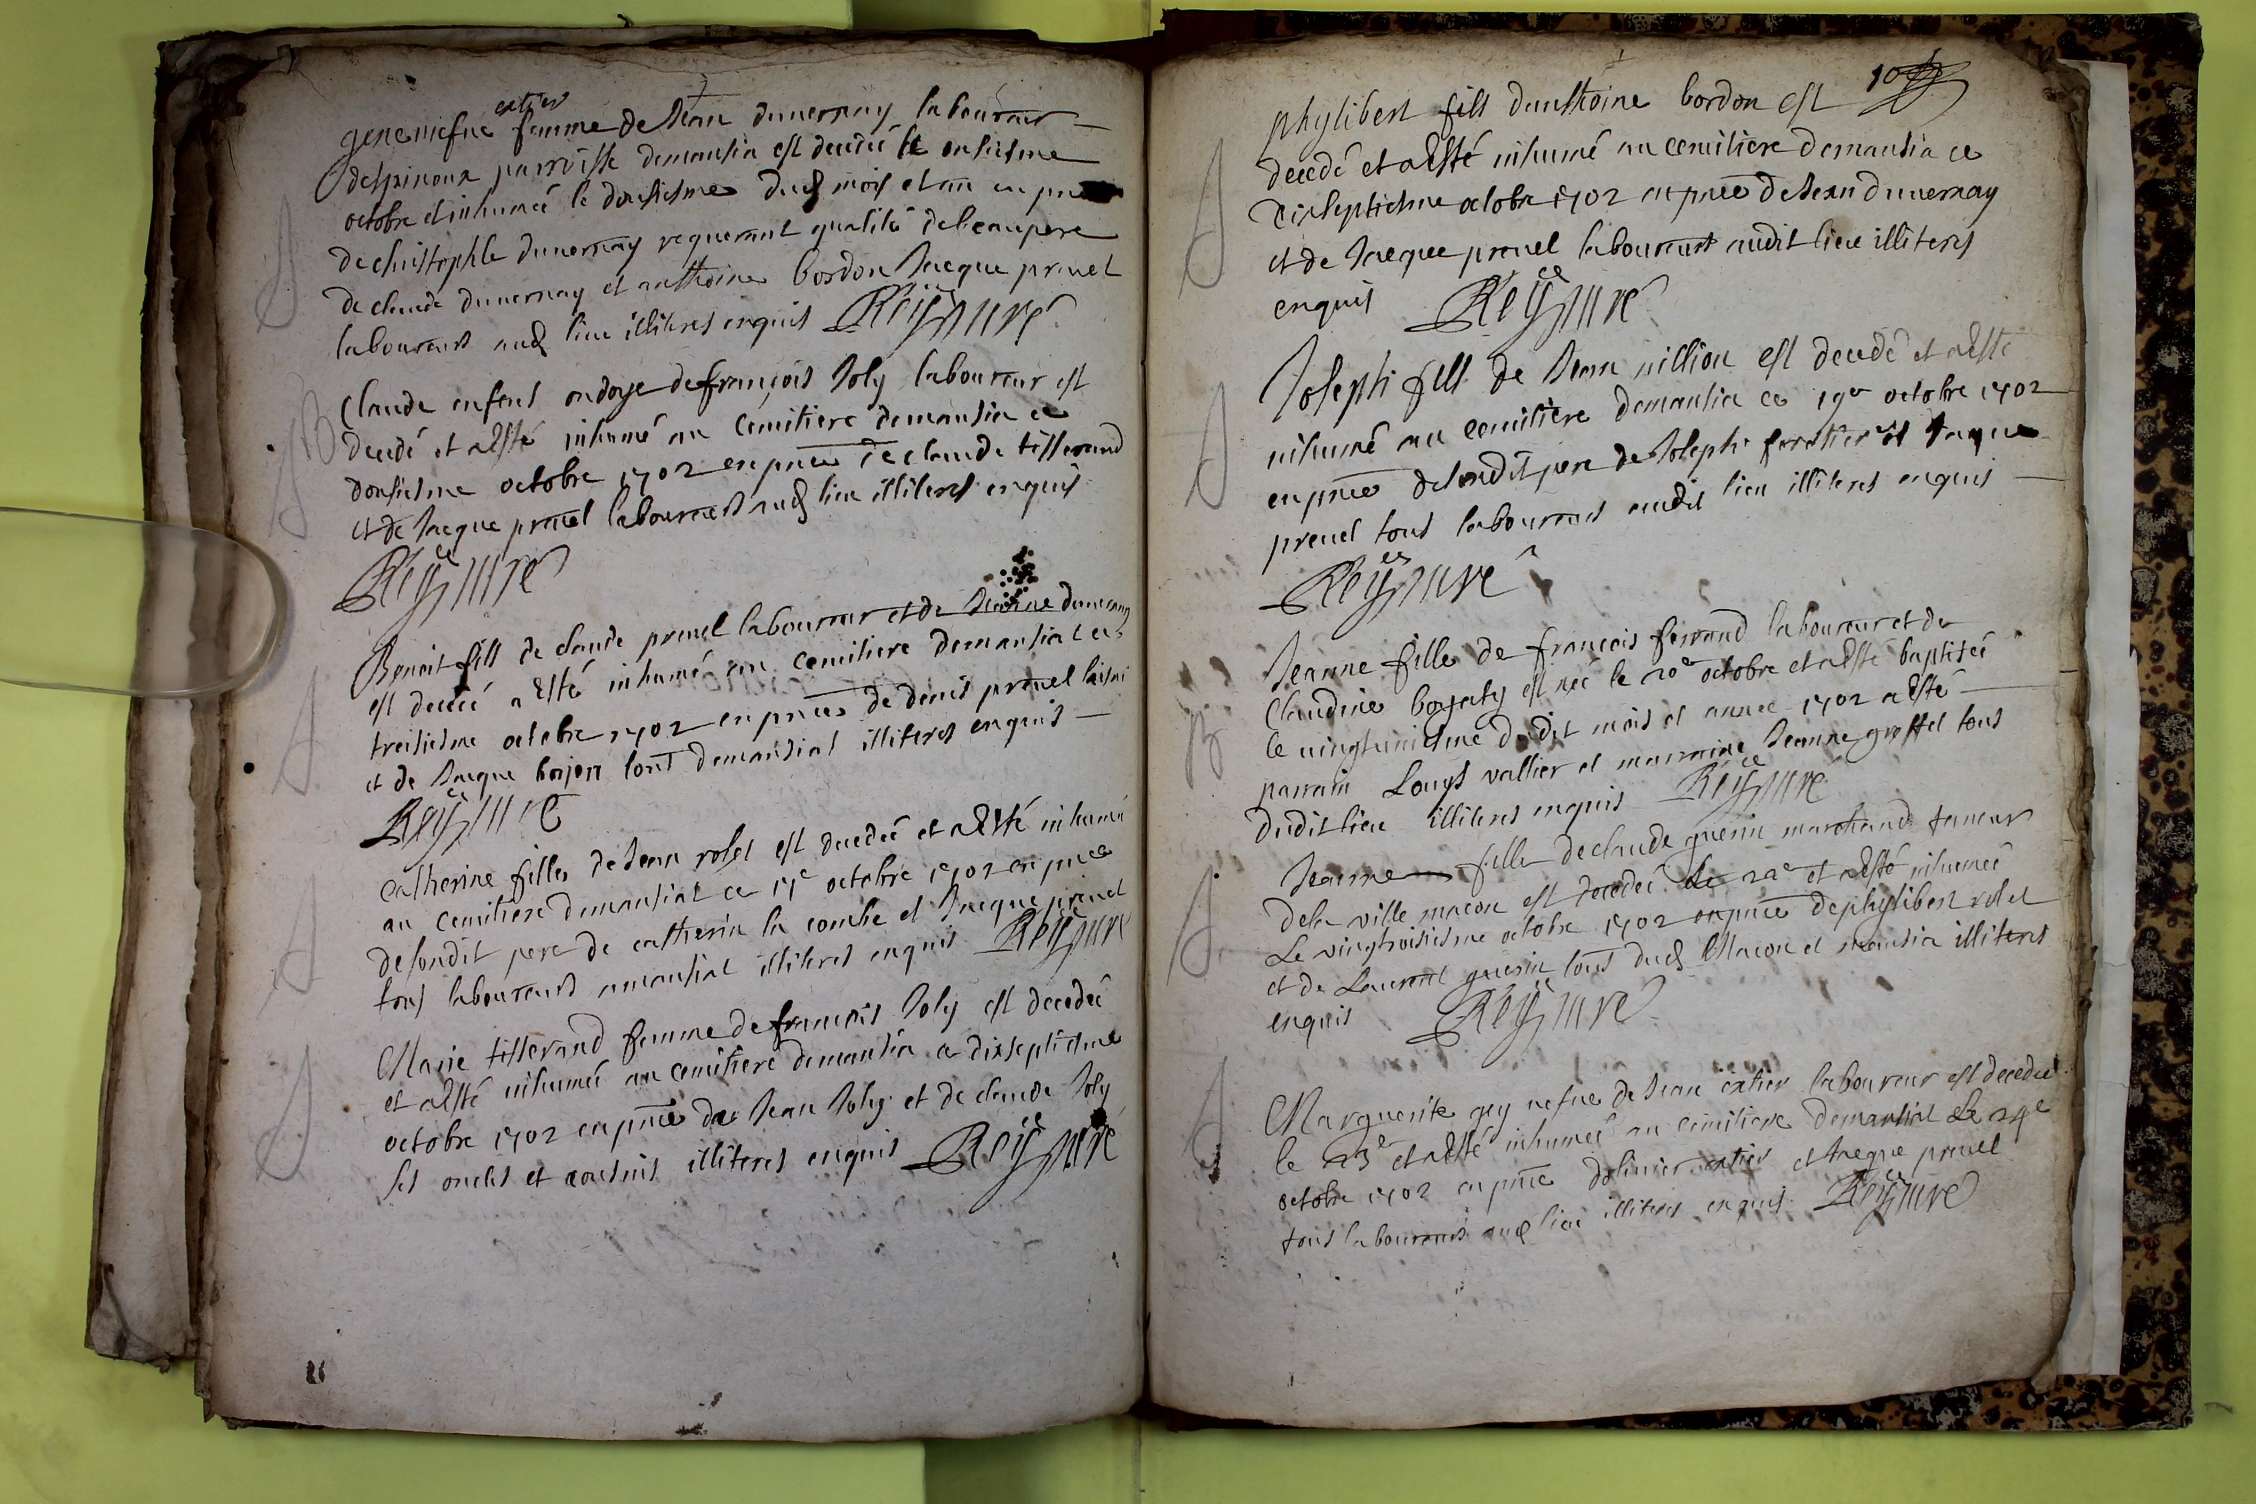 geneviefve catier femme de Jean duvernay laboureur
despinoux parroisse demansia est decedeé le onsiesme
octobre et inhumeé le dousiesme dud mois et an en pnce
de christophle duvernay requerant qualité de beaupere
de claude duvernay et anthoine bordon Jacque prevel
laboureurs aud lieu illiteres enquis Rey curé
Claude enfent ondoye de françois Joly laboureur est
decedé et a Esté inhumé au cemitiere demansia ce
dousiesme octobre 1702 en pnce de claude tisserand
et de Jacque prevel laboureurs aud lieu illiteres enquis
Rey curé
Benoit fils de claude prevel laboureur et de Jeanne duvernay
est decedé a Esté inhumé au cemitiere demansiat ce
treisiesme octobre 1702 en pnce de denis prevel
et de Jacque boyer tous demansiat illiteres enquis
Rey curé
Catherine fille de Jean rolet est decedeé et a Esté inhumé
au cemitiere demansiat ce 15e octobre 1702 en pnce
de sondit pere de catherin la combe et Jacque prevel
tous laboureurs amansiat illiteres enquis Rey curé
Marie tisserand femme de francois Joly est decedeé
et a Esté inhumeé au cemitiere demansia ce dixseptiesme
octobre 1702 en pnce de Jean Joly et de claude Joly
ses oncles et cousins illiteres enquis Rey curé
10
phylibert fils d'anthoine bordon est
decedé et a Esté inhumé au cemitiere demansia ce
dixseptiesme octobre 1702 en pnce de Jean duvernay
et de Jacque prevel laboureurs audit lieu illiteres
enquis Rey curé
Joseph fils de Jean villion est decedé et a Esté
inhumé au cemitiere demansia ce 19e octobre 1702
en pnce de sondit pere de Joseph foratier et Jaque
prevel tous laboureurs audit lieu illiteres enquis
Rey curé
Jeanne fille de francois ferrand laboureur et de
Claudine boyaty est neé le 20e octobre et a Esté baptiseé
le vingtuniesme dudit mois et annee 1702 a Esté
parrain Louys vallier et marraine Jeanne greffet tous
dudit lieu illiteres enquis Rey curé
Jeanne fille de claude guerin marchand taneur
dela ville macon est decedeé le 22e et a Esté inhumeé
Le vingtroisiesme octobre 1702 en pnce de phylibert rolet
et de Laurent guerin tous dud Macon et mansia illiteres
enquis Rey curé
Marguerite gey vefve de Jean catier laboureur est decedeé
le 23e et a Esté inhumeé au cimitiere demansiat Le 24e
octobre 1702 en pnce dolivier catier et Jacque prevel
tous laboureurs aud lieu illiteres enquis Rey curé